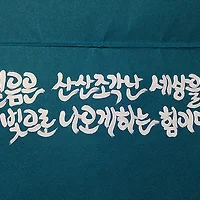 산산조각난 세상을
빛으로 나오게하는 힘이다